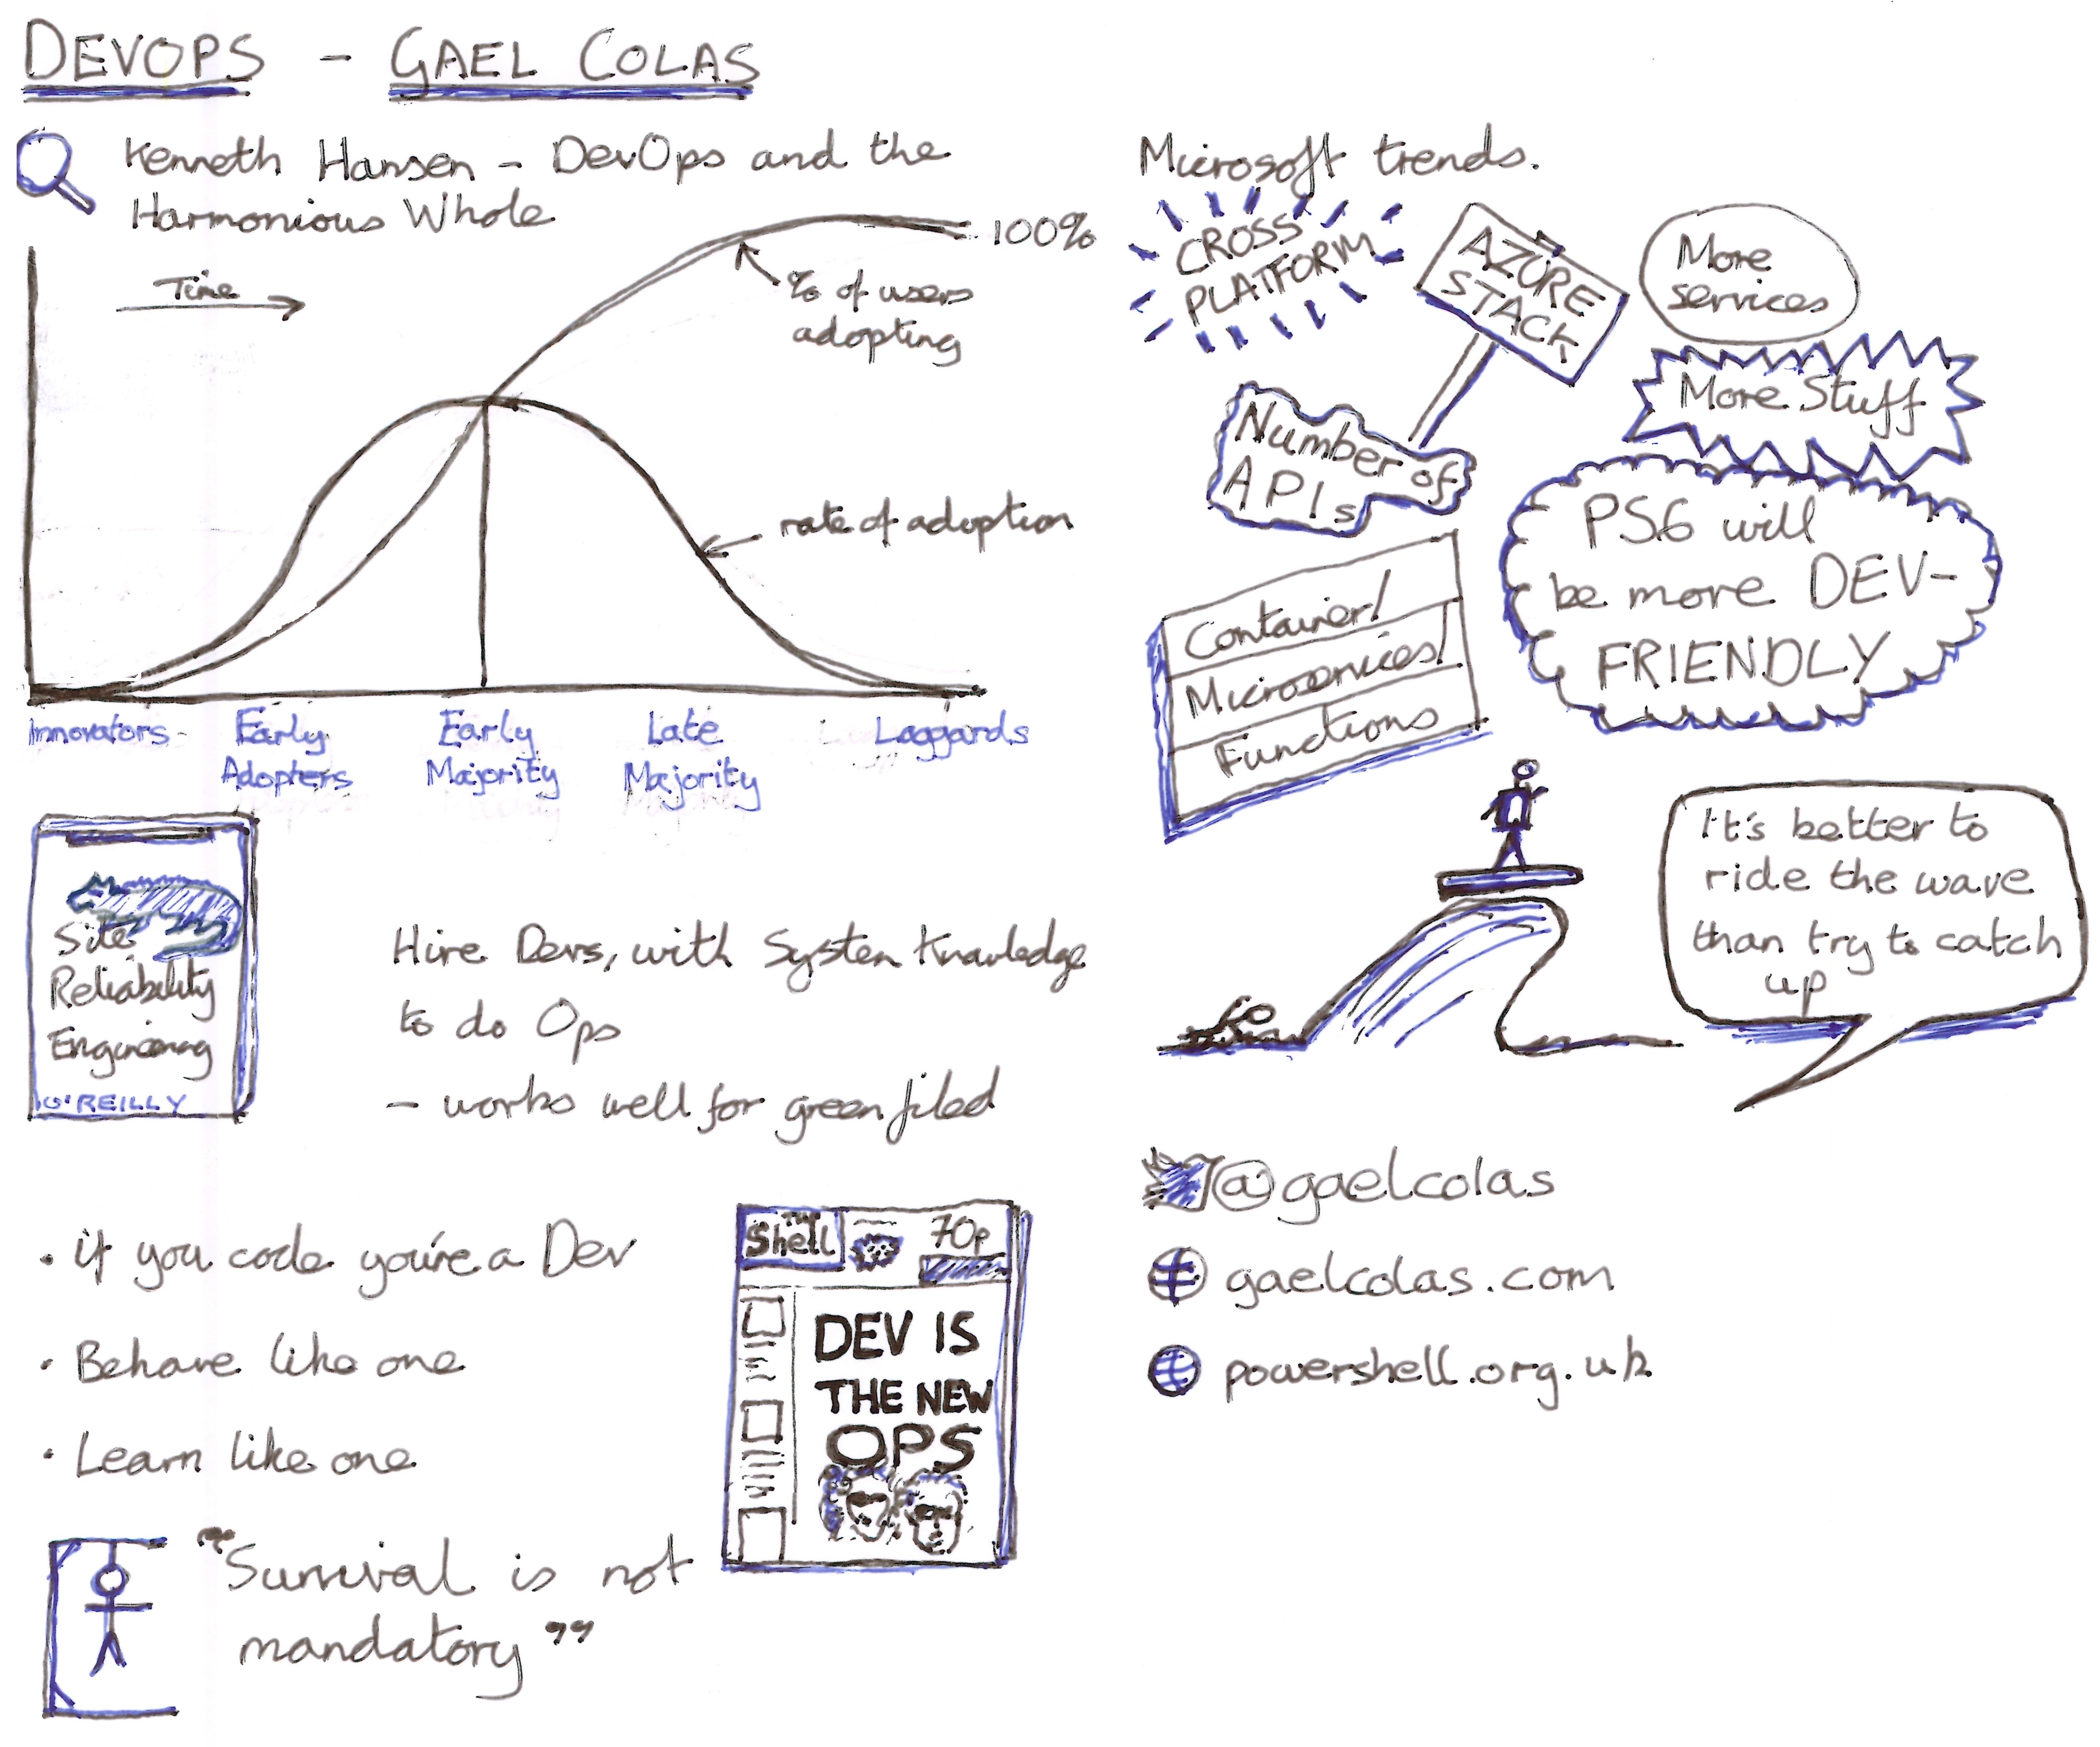 DEVOPS - GAEL COLAS
Kenneth Hansen - DevOps and the
Harmonious Whole
Time
100%
% of users
adopting
rate of adoption
Innovators
Early
Adopters
Early
Majority
Late
Majority
Laggards
Site
Reliability
Engineering
O'REILLY
Hire Devs, with System Knowledge
to do Ops
- works well for greenfiled
• if you code you're a Dev
• Behave like one
• Learn like one
Shell
70p
DEV IS
THE NEW
OPS
"Survival is not
mandatory"
Microsoft trends.
CROSS
PLATFORM
AZURE
STACK
More
services
More Stuff
Number of
APIs
PS6 will
be more DEV-
FRIENDLY
Container!
Microservices!
Functions
It's better to
ride the wave
than try to catch
up
@gaelcolas
gaelcolas.com
powershell.org.uk